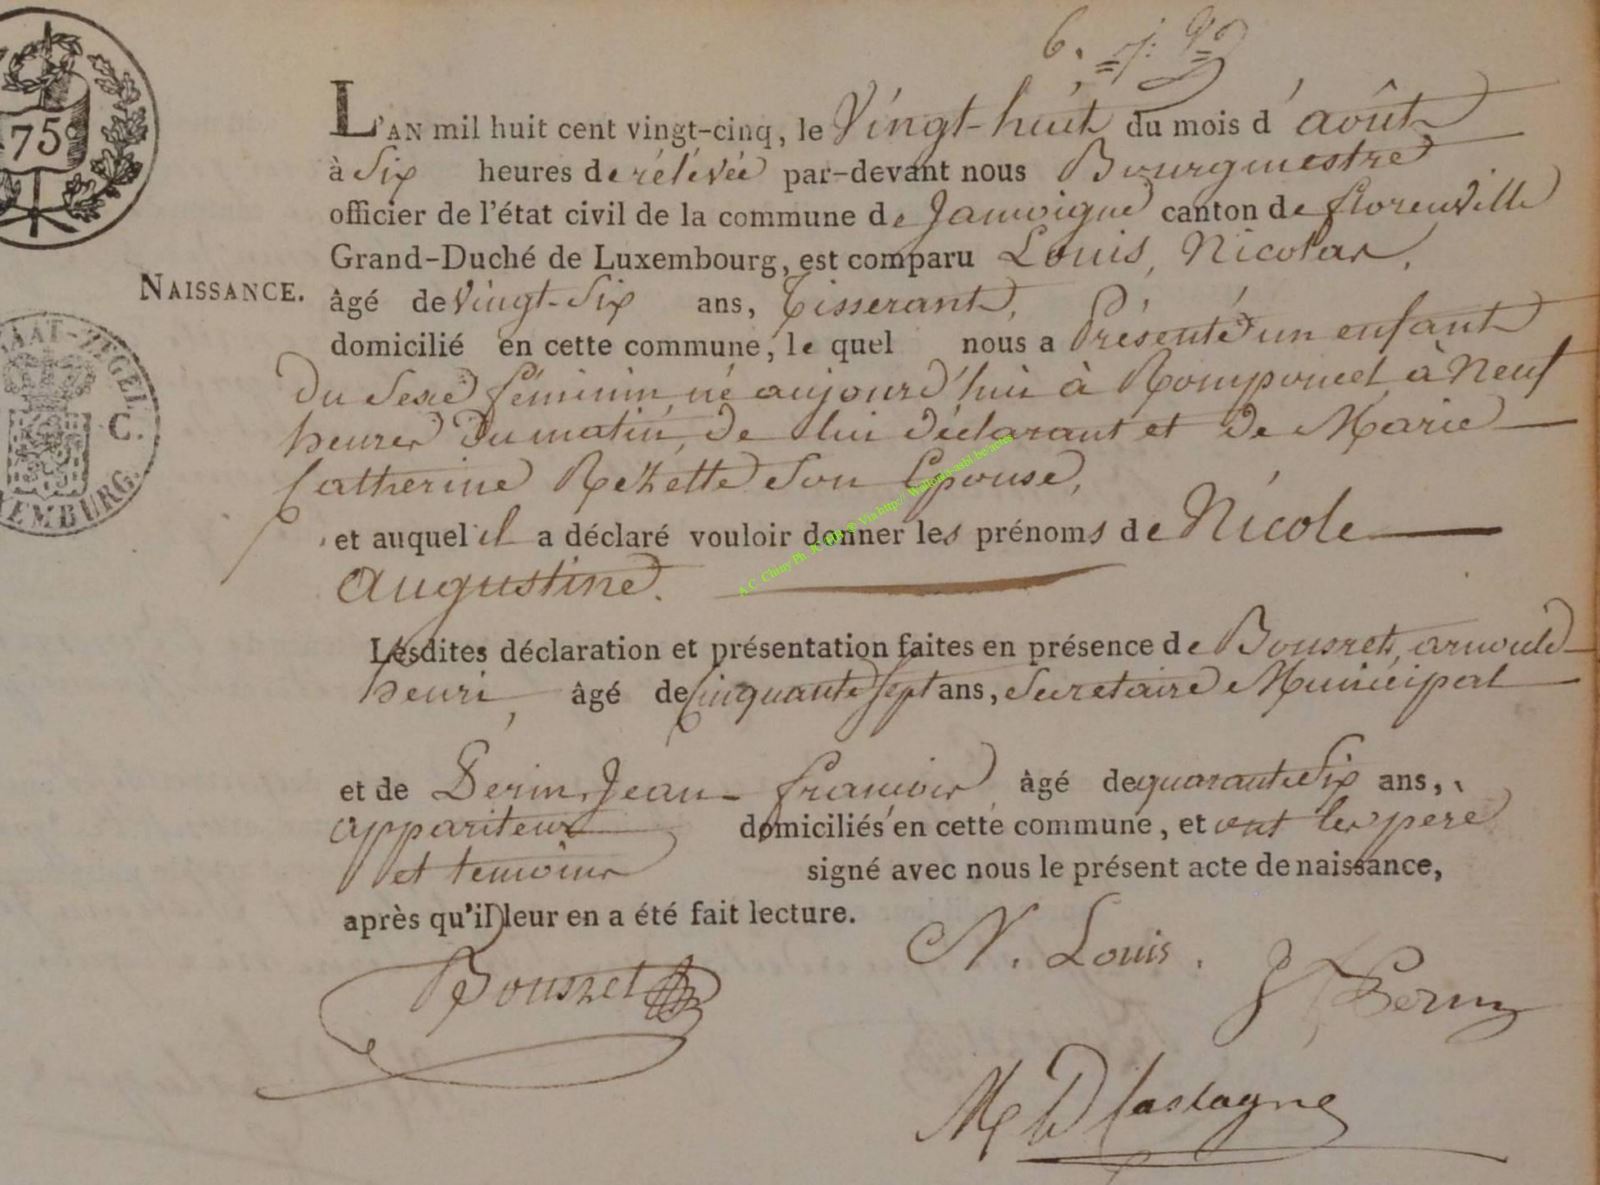 75
L'AN mil huit cent vingt-cinq, le Vingt-huit du mois d'août
à Six heures de rélévée par-devant nous Bourgmestre
officier de l'état civil de la commune de Jamoigne canton de florenville
Grand-Duché de Luxembourg, est comparu Louis, Nicolas,
NAISSANCE.
âgé de Vingt-Six ans, Tisserant,
domicilié en cette commune, le quel nous a Présenté un enfant
du Sexe féminin, né aujourd'hui à Romponcel à Neuf
heures du matin, de lui déclarant et de Marie
Catherine Rezette Son Epouse,
et auquel il a déclaré vouloir donner les prénoms de Nicole
Augustine.
Lesdites déclaration et présentation faites en présence de Bousret, arnould
henri, âgé de Cinquante Sept ans, Secretaire Municipal
et de Pierin, Jean-françois âgé de quarante Six ans,
appariteur domiciliés en cette commune, et ont les pere
et temoins signé avec nous le présent acte de naissance,
après qu'il leur en a été fait lecture.
N. Louis.
Bousret
M D Castagne
STAAT-ZEGEL
C.
LUXEMBURG.